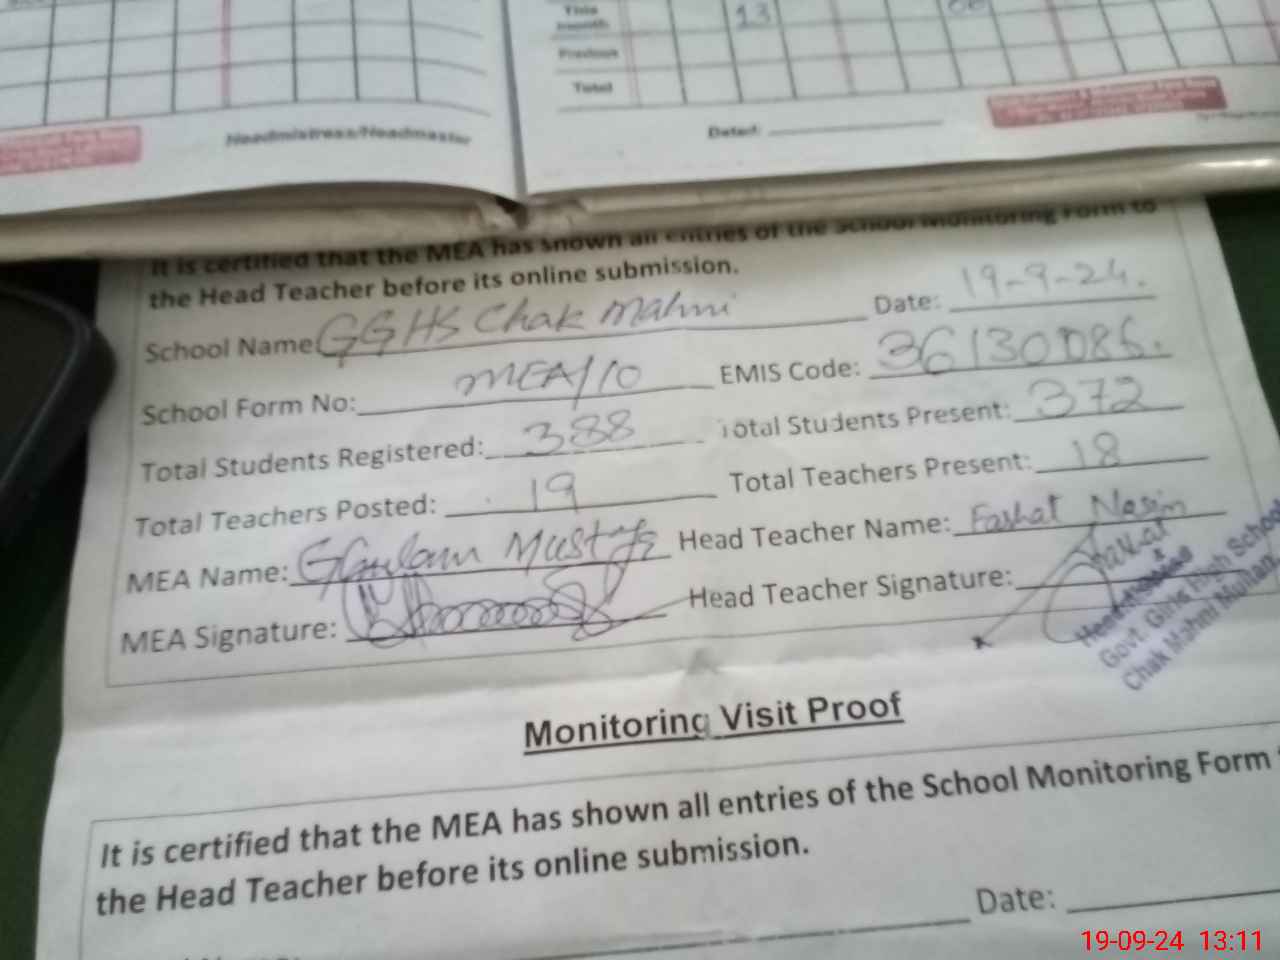 This month 13
Previous
Total
Headmistress/Headmaster
Dated:
It is certified that the MEA has shown all entries of the School Monitoring Form to
the Head Teacher before its online submission.
School Name GGHS Chak Mahni Date: 19-9-24.
School Form No: MEA/10 EMIS Code: 36130086.
Total Students Registered: 388 Total Students Present: 372
Total Teachers Posted: 19 Total Teachers Present: 18
MEA Name: Ghulam Mustafa Head Teacher Name: Farhat Nasim
MEA Signature: Head Teacher Signature: Farhat
Headmistress
Govt. Girls High School
Chak Mahni Multan
Monitoring Visit Proof
It is certified that the MEA has shown all entries of the School Monitoring Form
the Head Teacher before its online submission.
Date:
19-09-24 13:11